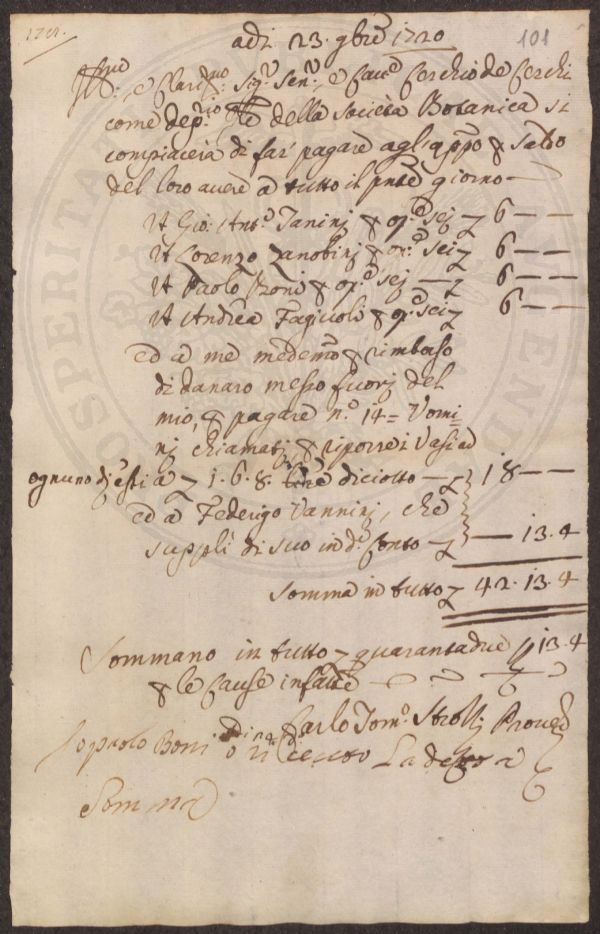 1720.
adi 23. 9bre 1720
101
Ill.mo, e Clar.mo Sig.r Sen.re, e Cav.e Cerchio de Cerchi
come dep.rio della Società Botanica si
compiacerà di far pagare agl'app.o p saldo
del loro avere a tutto il pnte giorno —
A Gio: Ant.o Tanini p op.e sei 7 6 — —
A Lorenzo Zanobini p op.e sei 7 6 — —
A Paolo Boni p op.e sei — 7 6 — —
A Andrea Fagiuoli p op.e sei 7 6 — —
ed a me medemo p rimborso
di danaro messo fuori del
mio, p pagare n.o 14 = Uomi=
ni chiamati p riporre i Vasi ad
ognuno di essi a 7 1. 6. 8. lire diciotto — 7 18 — —
ed a Federigo Vannini, che
supplì di suo in d.o Conto — 7 — 13. 4
Somma in tutto 7 42. 13. 4
Sommano in tutto 7 quarantadue 13. 4
p le cause infatte —
Carlo Tom.o Strozzi Proved.
Io paolo Boni o ricevuto La detta
Somma